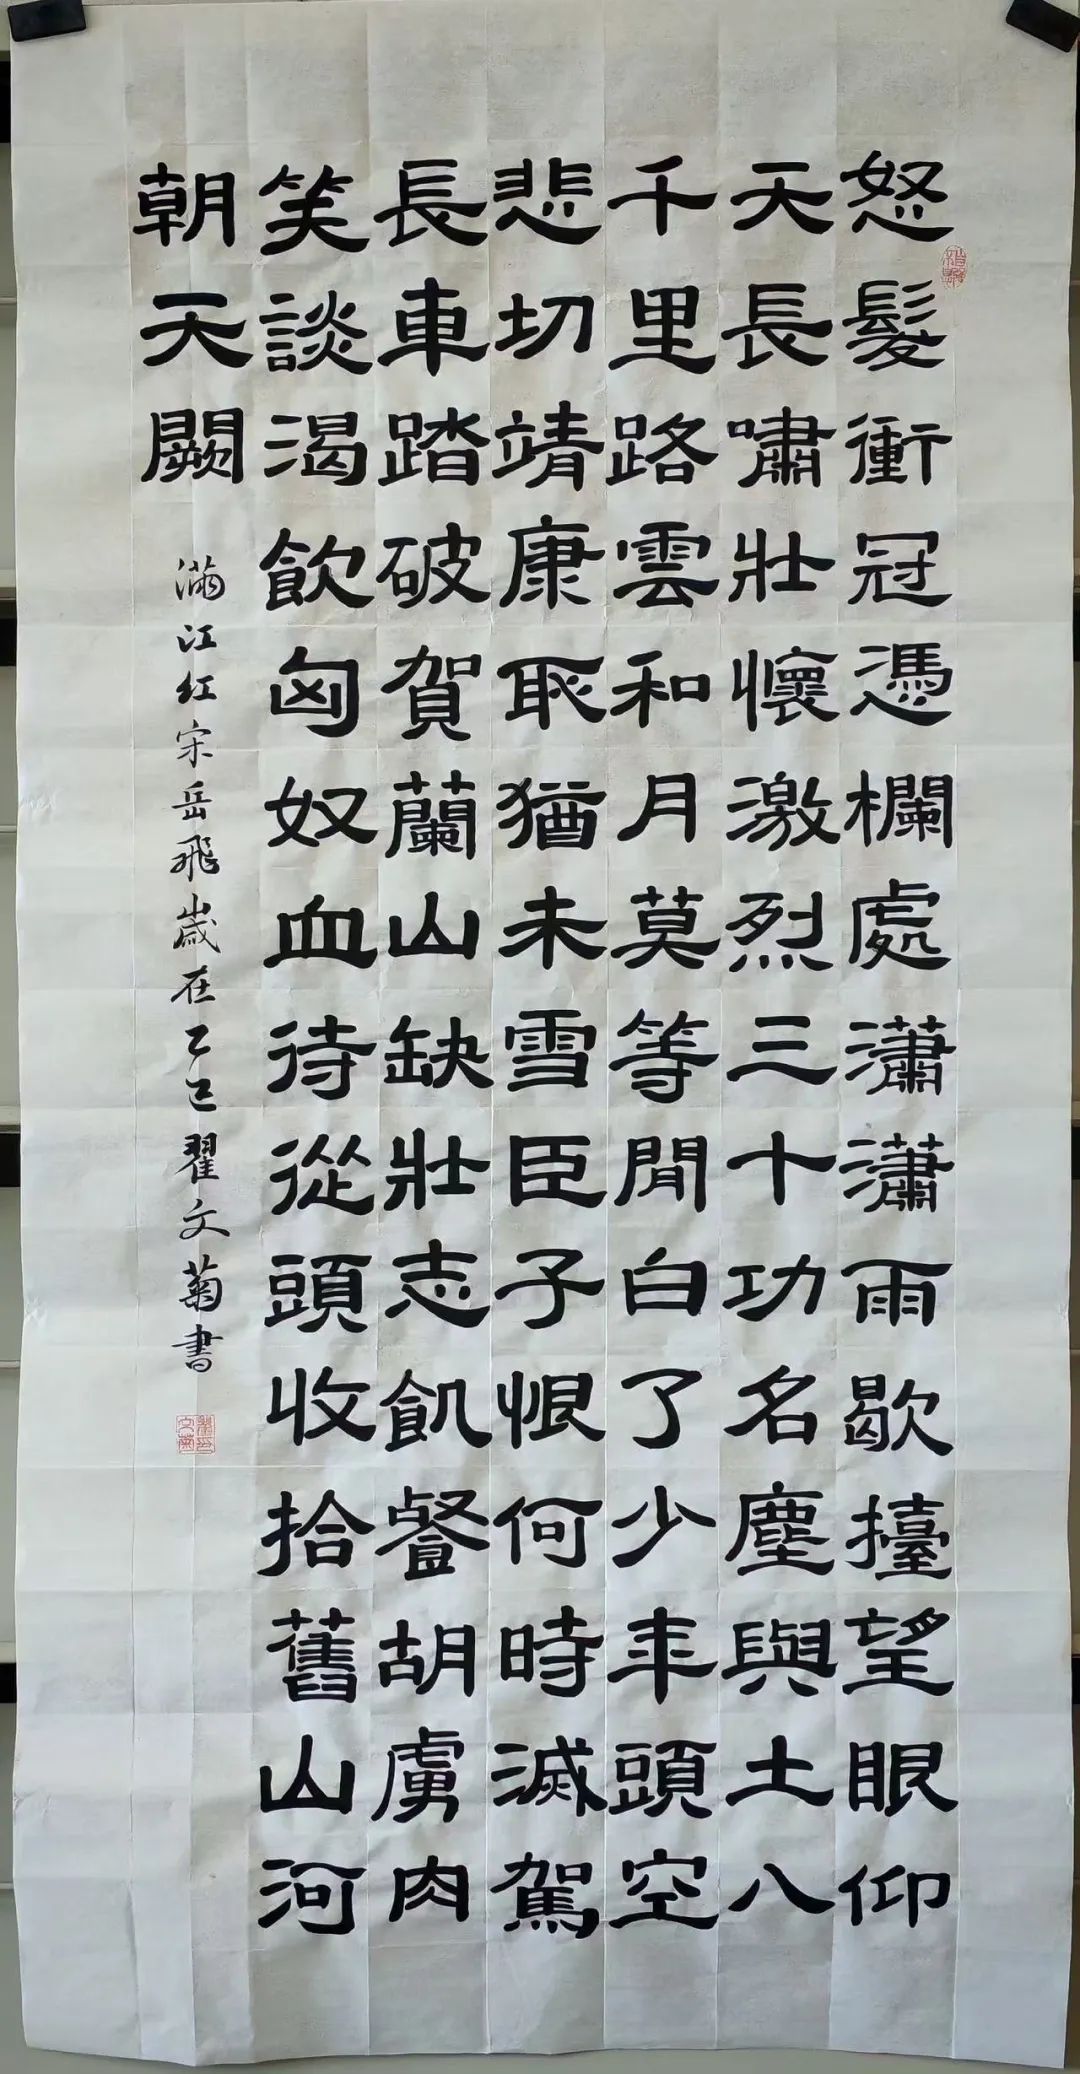 怒髮衝冠憑欄處瀟瀟雨歇擡望眼仰
天長嘯壯懷激烈三十功名塵與土八
千里路雲和月莫等閒白了少年頭空
悲切靖康恥猶未雪臣子恨何時滅駕
長車踏破賀蘭山缺壯志飢餐胡虜肉
笑談渴飲匈奴血待從頭收拾舊山河
朝天闕
滿江红宋岳飛歲在乙巳翟文菊書